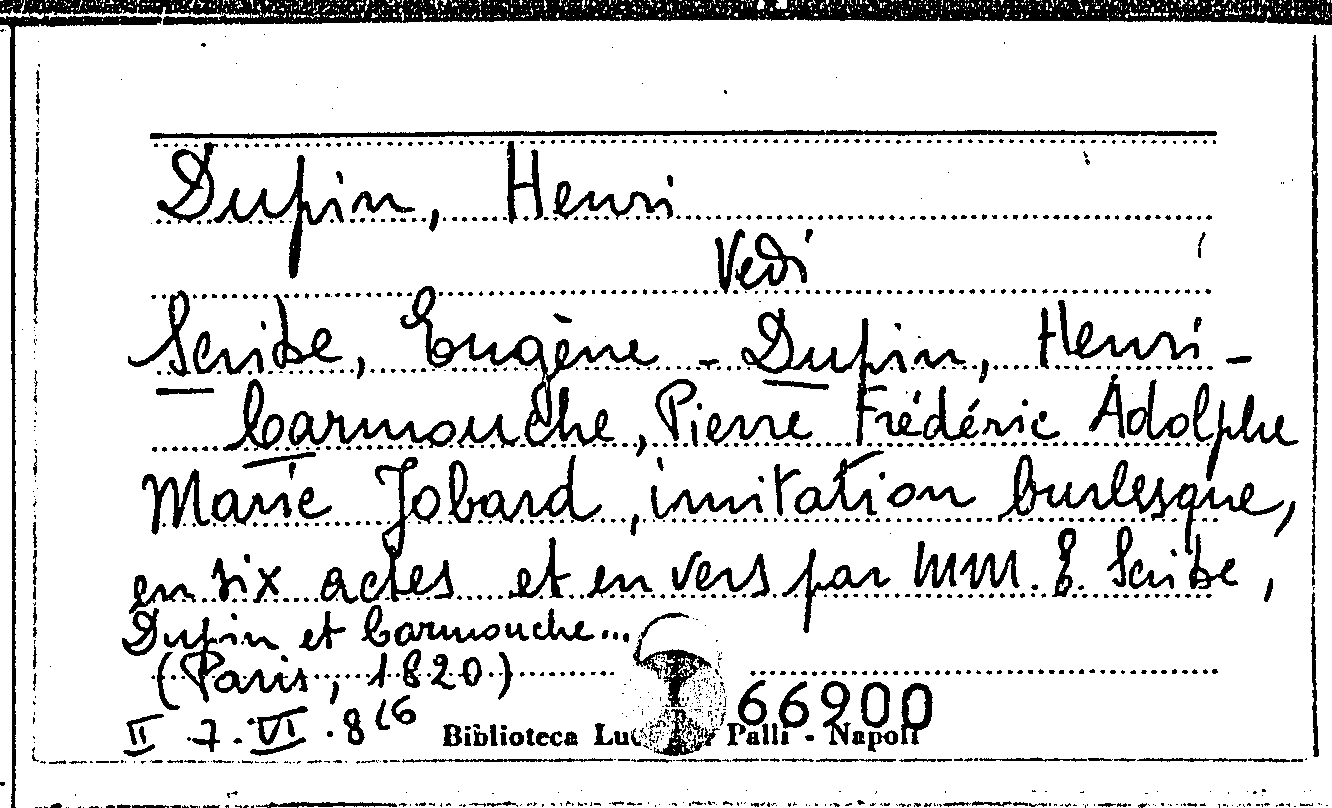 Dupin, Henri
Vedi
Scribe, Eugène - Dupin, Henri -
Carmouche, Pierre Frédéric Adolphe
Marie Jobard, imitation burlesque,
en six actes et en vers par MM. E. Scribe,
Dupin et Carmouche...
(Paris, 1820)
II . 7 . VI . 8 (6
66900
Biblioteca Palli - Napoli